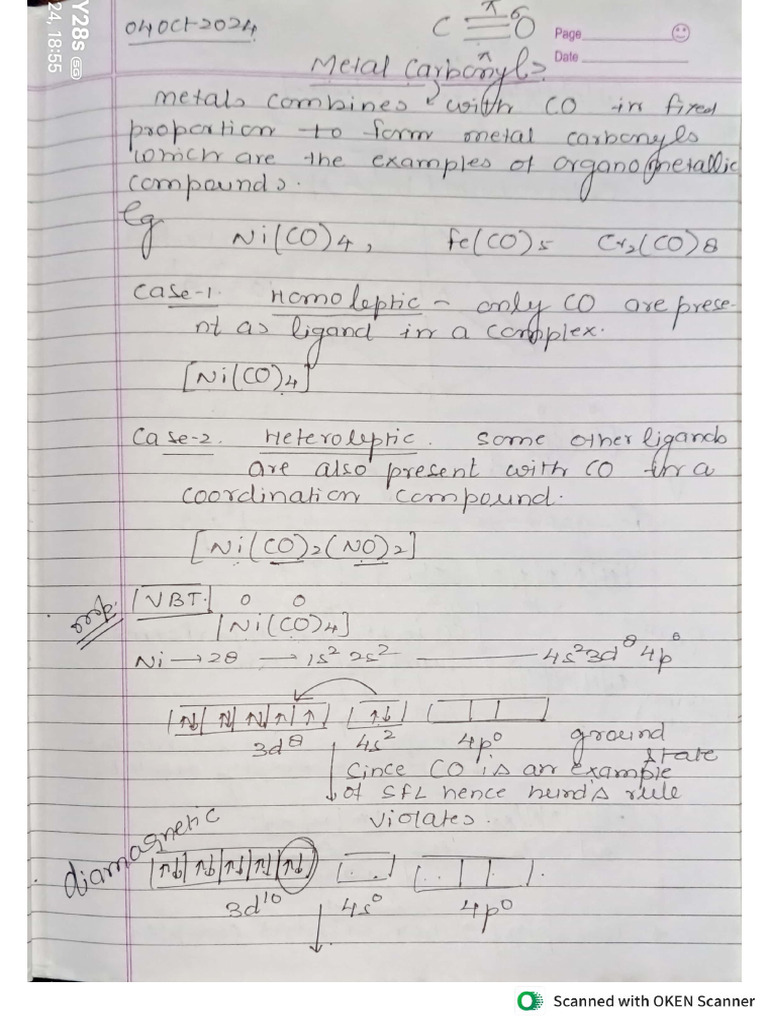 Y28s 5G
24, 18:55
04 Oct-2024
π σ
C ≡ O
π
Page
Date
Metal Carbonyls
metals combines with CO in fixed
proportion to form metal carbonyls
which are the examples of organometallic
compounds.
Eg Ni(CO)4, Fe(CO)5 Cr2(CO)8
Case-1. Homoleptic - only CO are prese-
nt as ligand in a complex.
[Ni(CO)4]
Case-2. Heteroleptic. Some other ligands
are also present with CO in a
coordination compound.
[Ni(CO)2(NO)2]
VBT
0 0
[Ni(CO)4]
Ni → 28 → 1s2 2s2 4s2 3d8 4p0
↑↓ ↑↓ ↑↓ ↑ ↑ ↑↓
3d8 4s2 4p0 ground
state
Since CO is an example
of SFL hence hund's rule
violates.
diamagnetic
↑↓ ↑↓ ↑↓ ↑↓ ↑↓
3d10 4s0 4p0
Scanned with OKEN Scanner